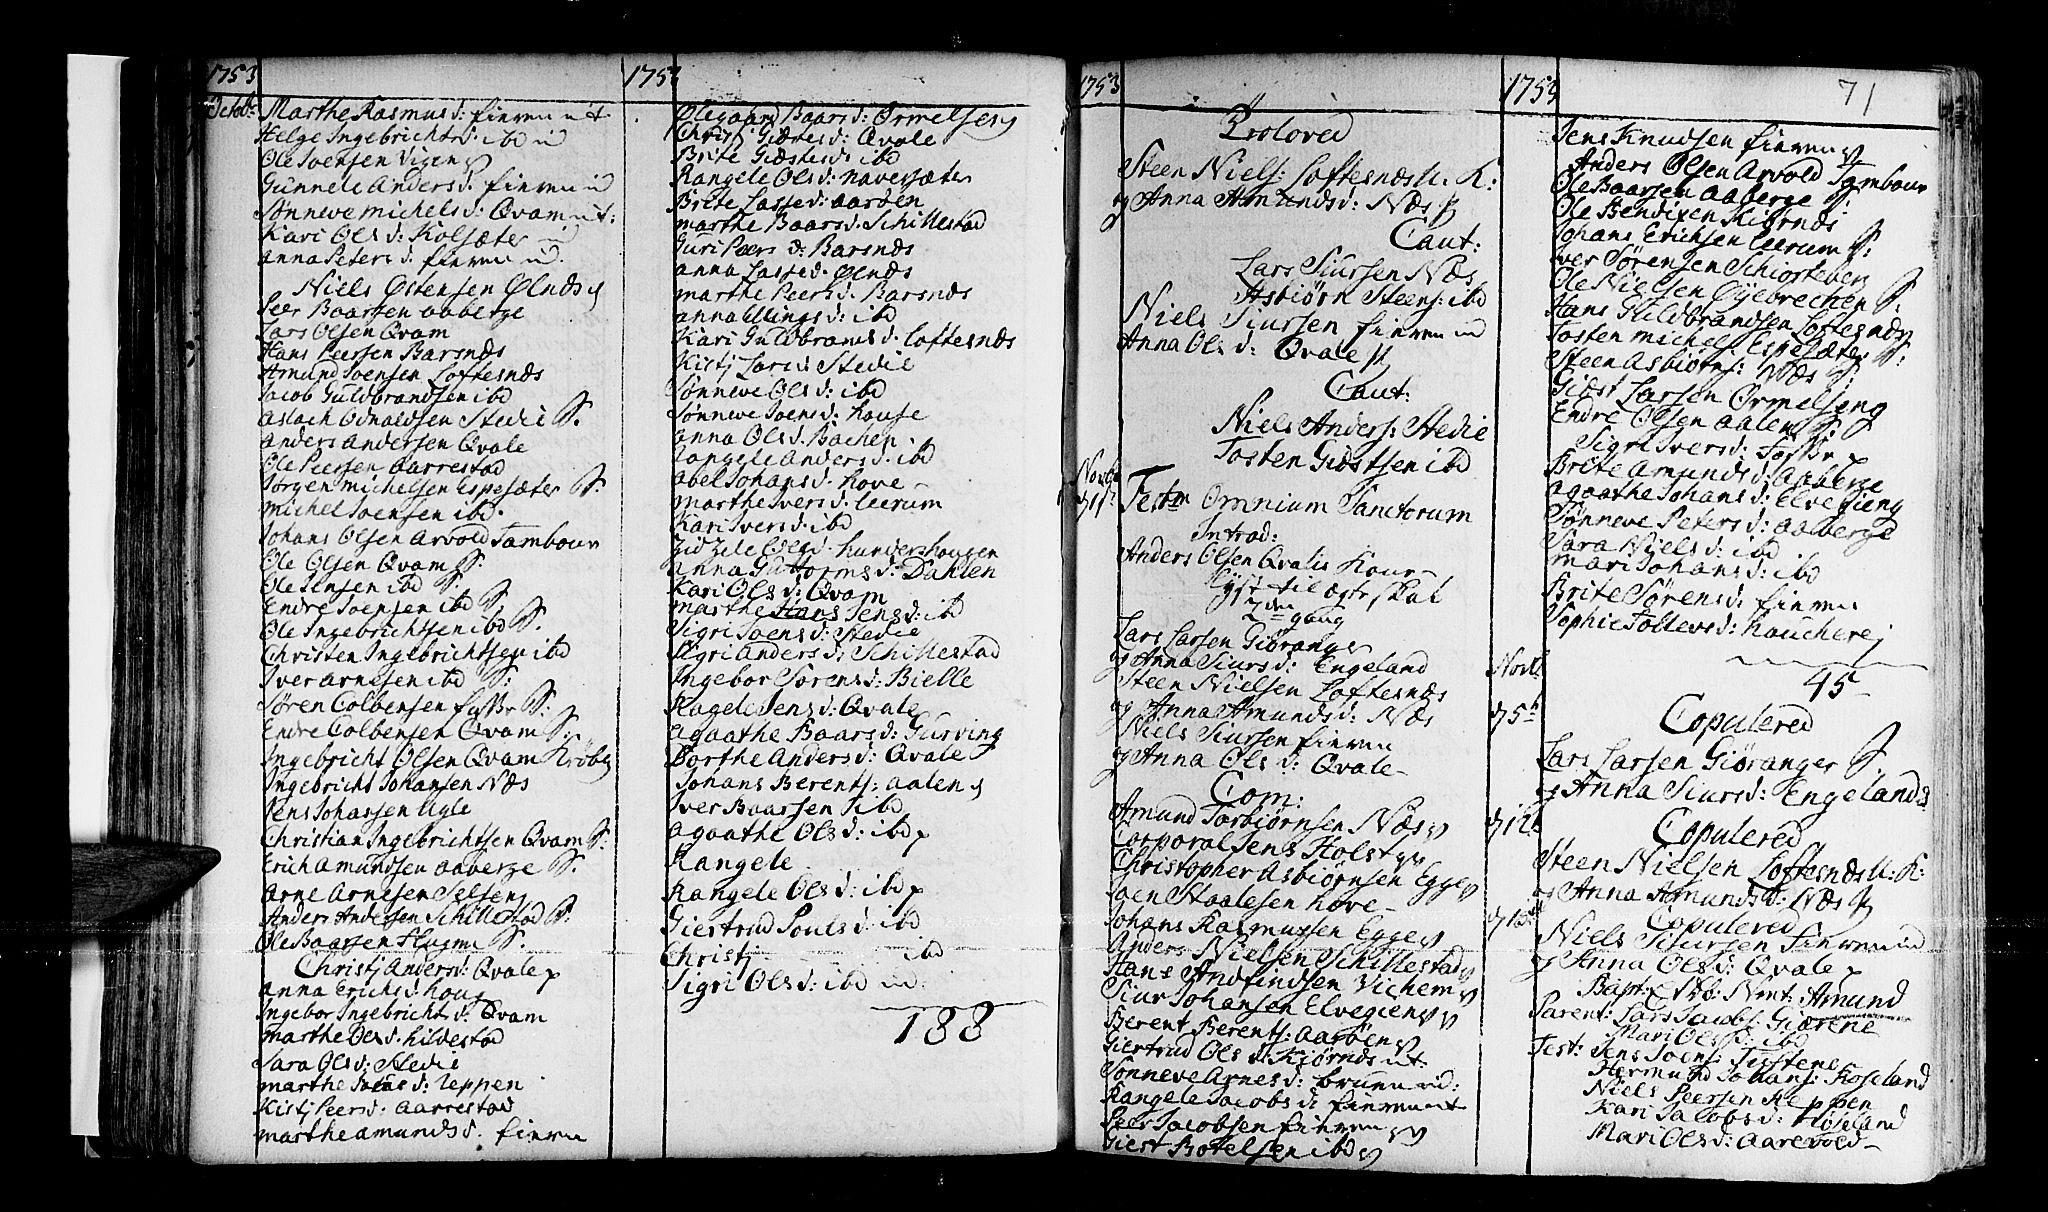 1753
Octobr
Marthe Rasmusd: Fimren ut
Helge Ingebrichtsd: ibd ud
Ole Joensen Vigen
Gunnele Andersd: Fimren ud
Sønneve Michelsd: Qvam ut:
Kari Olsd: Kolsæter ud
Anna Petersd: Fimren ud.
Niels Østensen Ølnæs
Peer Baarsen Aaberge
Lars Olsen Qvam
Hans Peersen Barsnæs
Amund Joensen Loftesnæs
Jacob Guldbrandsen ibd
Aslach Odnaldsen Stedie S.
Anders Andersen Qvale
Ole Peersen Aarrestad
Jørgen Michelsen Espesæter S.
Michel Joensen ibd.
Johans Olsen Arvold Tambour
Ole Olsen Qvam S.
Ole Jensen ibd S.
Endre Joensen ibd S.
Ole Ingebrichtsen ibd S.
Christen Ingebrichtsen ibd
Iver Arnesen ibd S.
Søren Colbensen S.
Endre Colbensen Qvam S.
Ingebricht Olsen Qvam Krøbl
Ingebricht Johansen Næs
Jens Johansen Ugle
Christian Ingebrichtsen Qvam S.
Erich Amundsen Aaberge S.
Arne Arnesen Selseng
Anders Andersen Schillestad S.
Ole Baarsen Hugme S.
Christj Andersd: Qvale p
Anna Erichsd: Houg
Ingebor Ingebrichtsd: Qvam
Marthe Olsd: Hildestad
Sara Olsd: Stedie
Marthe Joensd: Reppen
Kistj Peersd: Aarrestad
Marthe Amundsd. Fimren
1753
Olegaard Baarsd: Ormelseng
Christj Giæstesd: Qvale
Brite Giæstesd: ibd
Rangele Olsd: Navarsæter
Brite Lassed: Aarøen
Marthe Baarsd. Schillestad
Guri Peersd: Barsnæs
Anna Lassed. Ølnæs
Marthe Peersd. Barsnæs
Anna Ellingsd: ibd
Kari Guldbransd: Loftesnæs
Kistj Larsd Stedie
Sønneve Olsd: ibd
Sønneve Joensd: House
Anna Olsd. Bachen.
Rangele Andersd. ibd
Abel Johansd. Hove
Marthe Iversd: Leerum
Kari Iversd: ibd
Zidzele Olsd. Hundershougen
Anna Guttormsd: Dahlen
Kari Olsd: Qvam
Marthe Hans Jensd: ibd
Sigri Joensd: Stedie
Sigri Andersd: Schillestad
Ingebor Sørensd: Bielle
Ragele Jensd: Qvale
Agaathe Baarsd: Gurving
Dorthe Andersd: Qvale
Johans Berents: Aalen
Iver Baarsen ibd
Agaathe Olsd: ibd p
Rangele
Rangele Olsd: ibd p
Giertrud Poulsd: ibd
Christj ibd
Sigri Olsd: ibd ud.
188
1753
Troloved
Steen Niels: Loftesnæs U. K:
og Anna Amundsd: Næs p
Caut:
Lars Siursen Næs
Asbiørn Steens: ibd
Niels Siursen Fimren ud
Anna Olsd: Qvale p
Caut:
Niels Anders: Stedie
Tosten Giæstsen ibd
Novbr
d 1st
Festm Omnium Sanctorum
Introd:
Anders Olsen Qvalis Kone
Lyst til ægteskab
2den gang
Lars Larsen Giøranger
og Anna Siursd: Engeland
Steen Nielsen Loftesnæs
og Anna Amundsd: Næs
Niels Siursen Fimren
og Anna Olsd: Qvale
Com:
Amund Torbiørnsen Næs
Corporal Jens Holst
Christopher Asbiørnsen Egge
Joen Staalesen Hove
Johans Rasmussen Egge
Anders Nielsen Schillestad
Hans Andfindsen Vichem
Siur Johansen Elvegien
Berent Berents: Aarøen
Giertrud Olsd: Kiørnæs ut:
Sønneve Arnesd: Bruun ud:
Rangele Jacobsd: Fimren ut
Peer Jacobsen Fimren
Giest Botelsen ibd
1753
71
Jens Knudsen Fimren
Anders Olsen Arvold Tambour
Ole Baarsen Aaberge S.
Ole Bendixen Kiørnæs
Johans Erichsen Leerum S.
Iver Sørensen Schiørteberg
Ole Nielsen Øyebrechen S.
Hans Guldbrandsen Loftesnæs
Tosten Michels: Espesæter S.
Steen Asbiørns: Næs S.
Giæst Larsen Ormelseng
Endre Olsen Aalen S.
Sigri Iversd:
Brite Amundsd: Aaberge
Agaathe Johansd: Elvegieng
Sønneve Petersd: Aaberge
Sara Nielsd: ibd
Mari Johansd: ibd
Brite Sørensd: Fimren
Sophie Tollevsd: Houcherej
45
Novb
d 5te
Copulered
Lars Larsen Giøranger S.
og Anna Siursd: Engeland
d 12te
Copulered
Steen Nielsen Loftesnæs U: K:
og Anna Amundsd: Næs p
d 15de
Copulered
Niels Siursen Fimren ud
og Anna Olsd: Qvale p
Bapt: Nomt: Amund
Parent: Lars Jacobs: Giærene
Mari Olsd: ibd
Test: Jens Joens:
Hermund Johans: Roseland
Niels Peersen Reppen
Kari Jacobsd: Røseland
Mari Olsd: Aarevold